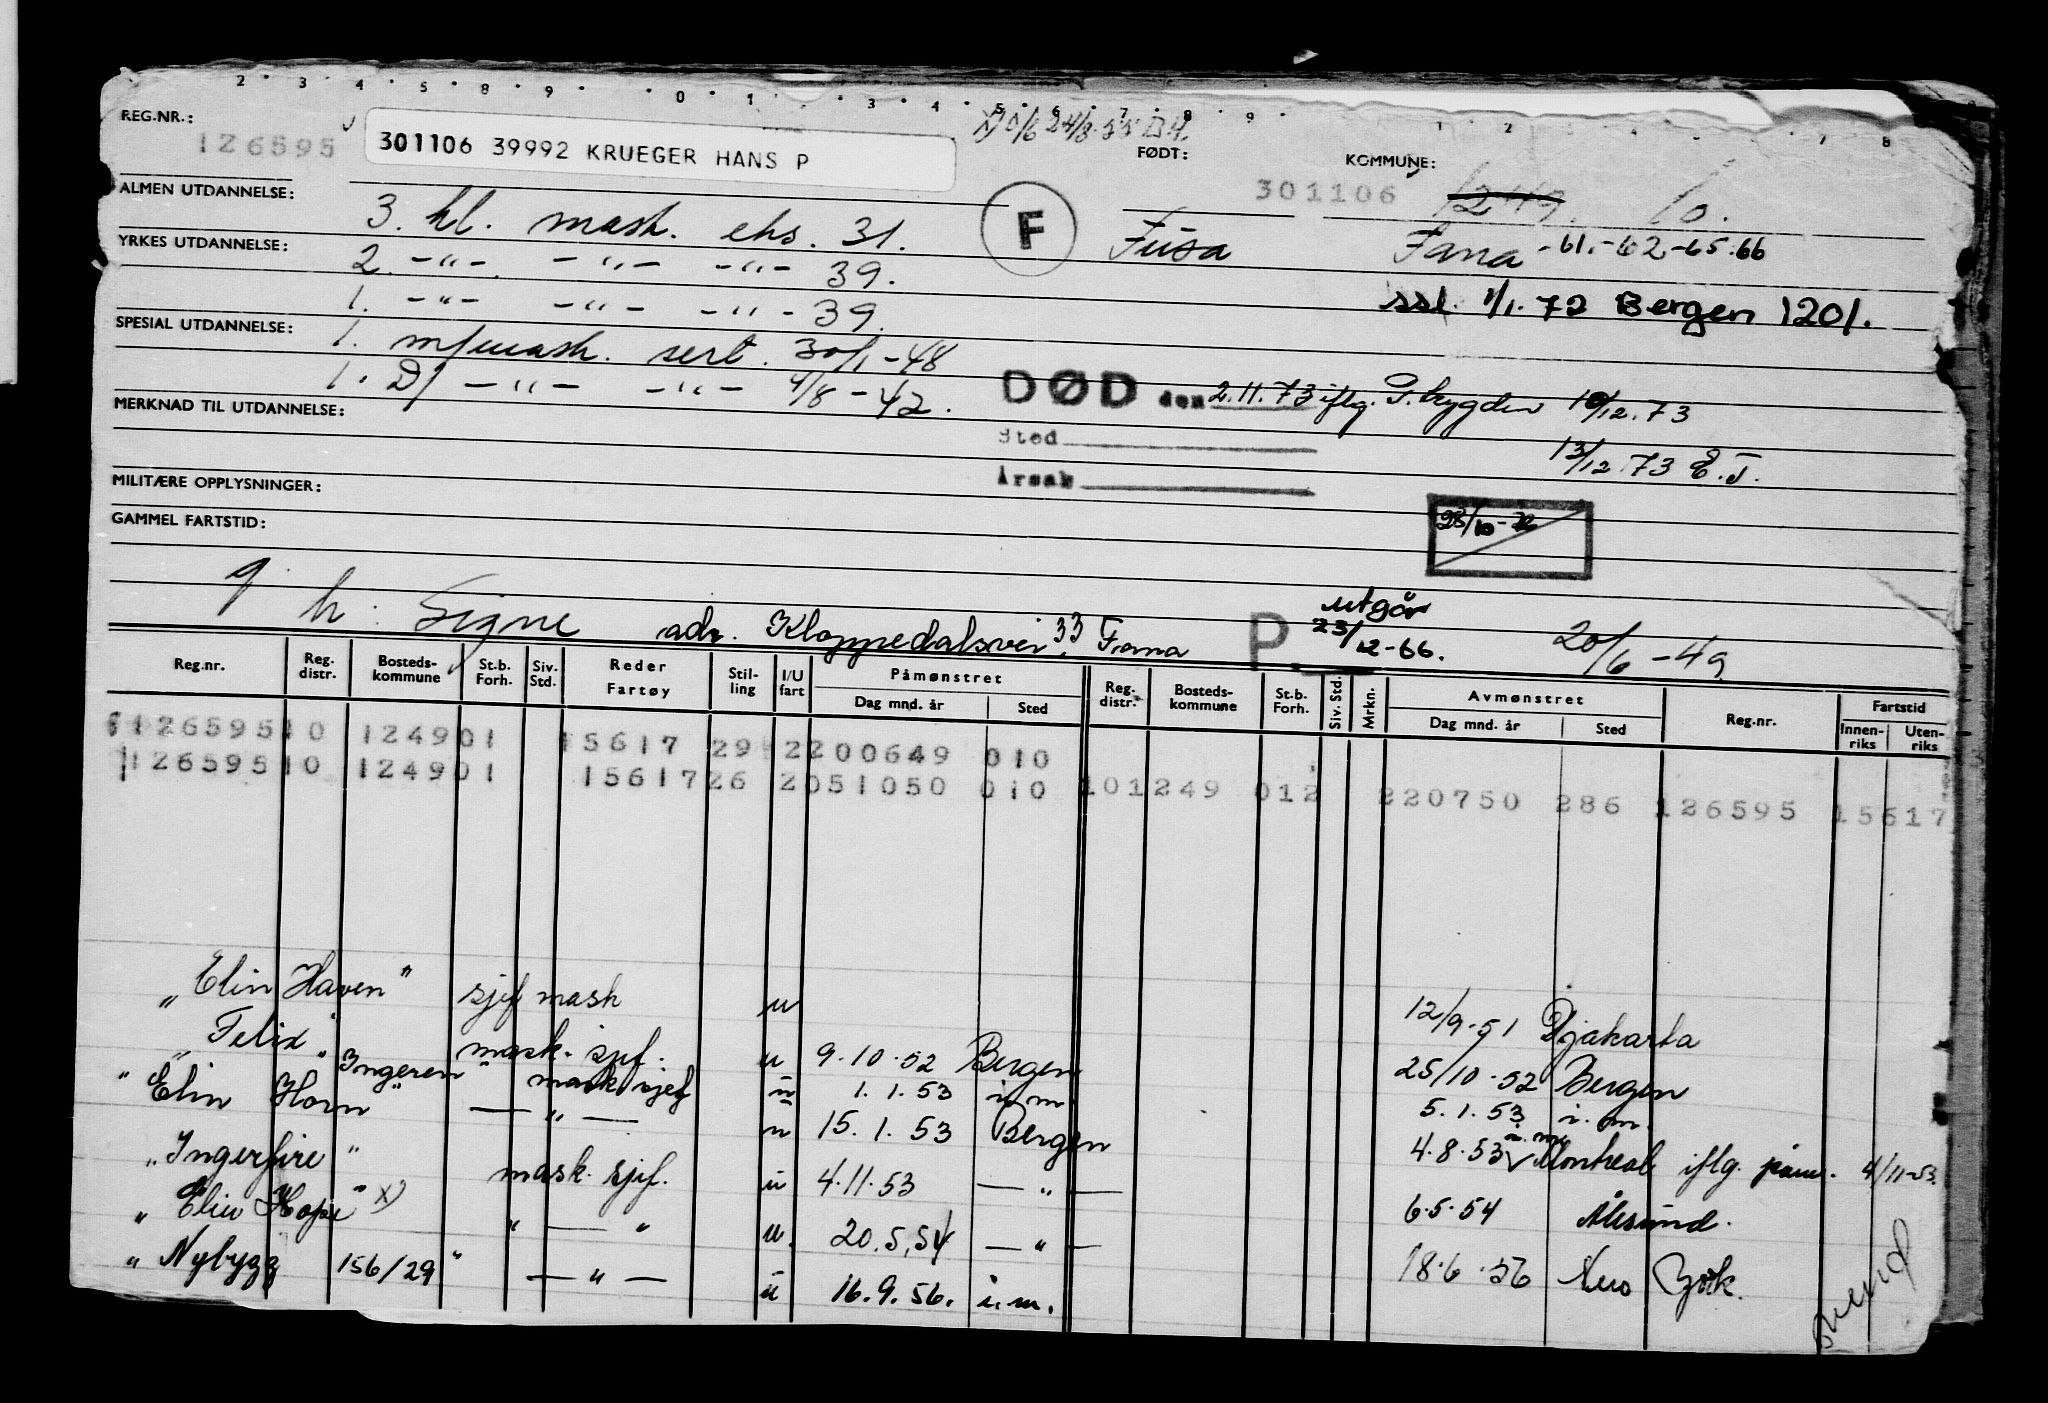 2 3 4 5 8 9 0 1 3 4 5 6 7 8 9 1 2 7 8
REG.NR.:
126595
301106 39992 KRUEGER HANS P
24/8-55
FØDT:
301106
KOMMUNE:
1249. 10.
ALMEN UTDANNELSE:
3. kl. mask. eks. 31.
F
Fusa
Fana -61.-62-65.66
YRKES UTDANNELSE:
2. -"- -"- -"- 39.
1. -"- -"- -"- 39.
ssl. 1/1.72 Bergen 1201.
SPESIAL UTDANNELSE:
1. m/mask. sert. 30/1-48
1. D/ -"- -"- 4/8-42.
DØD den 2.11.73 iflg. T.bygden 10/12.73
MERKNAD TIL UTDANNELSE:
Sted
13/12.73 E.T.
Årsak
MILITÆRE OPPLYSNINGER:
GAMMEL FARTSTID:
g. h. Signe adr. Kloppedalsvei 33 Fana
P.
utgår
23/12-66.
20/6-49
Reg.nr. Reg. distr. Bosteds- kommune St.b. Forh. Siv. Std. Reder Fartøy Stil- ling I/U fart Påmønstret Dag mnd. år Sted Reg. distr. Bosteds- kommune St.b. Forh. Siv. Std. Mrkn. Avmønstret Dag mnd. år Sted Reg.nr. Fartstid Innen- riks Uten- riks
126595 10 124901 15617 29 2200649 010
126595 10 124901 15617 26 2051050 010 101249 012 220750 286 126595 15617
"Elin Haven" sjef mask u 12/9-51 Djakarta
"Felix" mask. sjef. u 9.10.52 Bergen 25/10-52 Bergen
Ingeren" mask sjef u 1.1.53 i.m. 5.1.53 i.m.
"Elin Horn" — " — u 15.1.53 Bergen 4.8.53 Montreal iflg. påm. 4/11-53.
"Ingerfire" mask. sjef. u 4.11.53 — " — 6.5.54 Ålesund.
"Elin Hope" x) " — " u. 20.5.54 — " — 18.6.56 New York.
"Nybygg 156/29" — " — u 16.9.56. i.m.